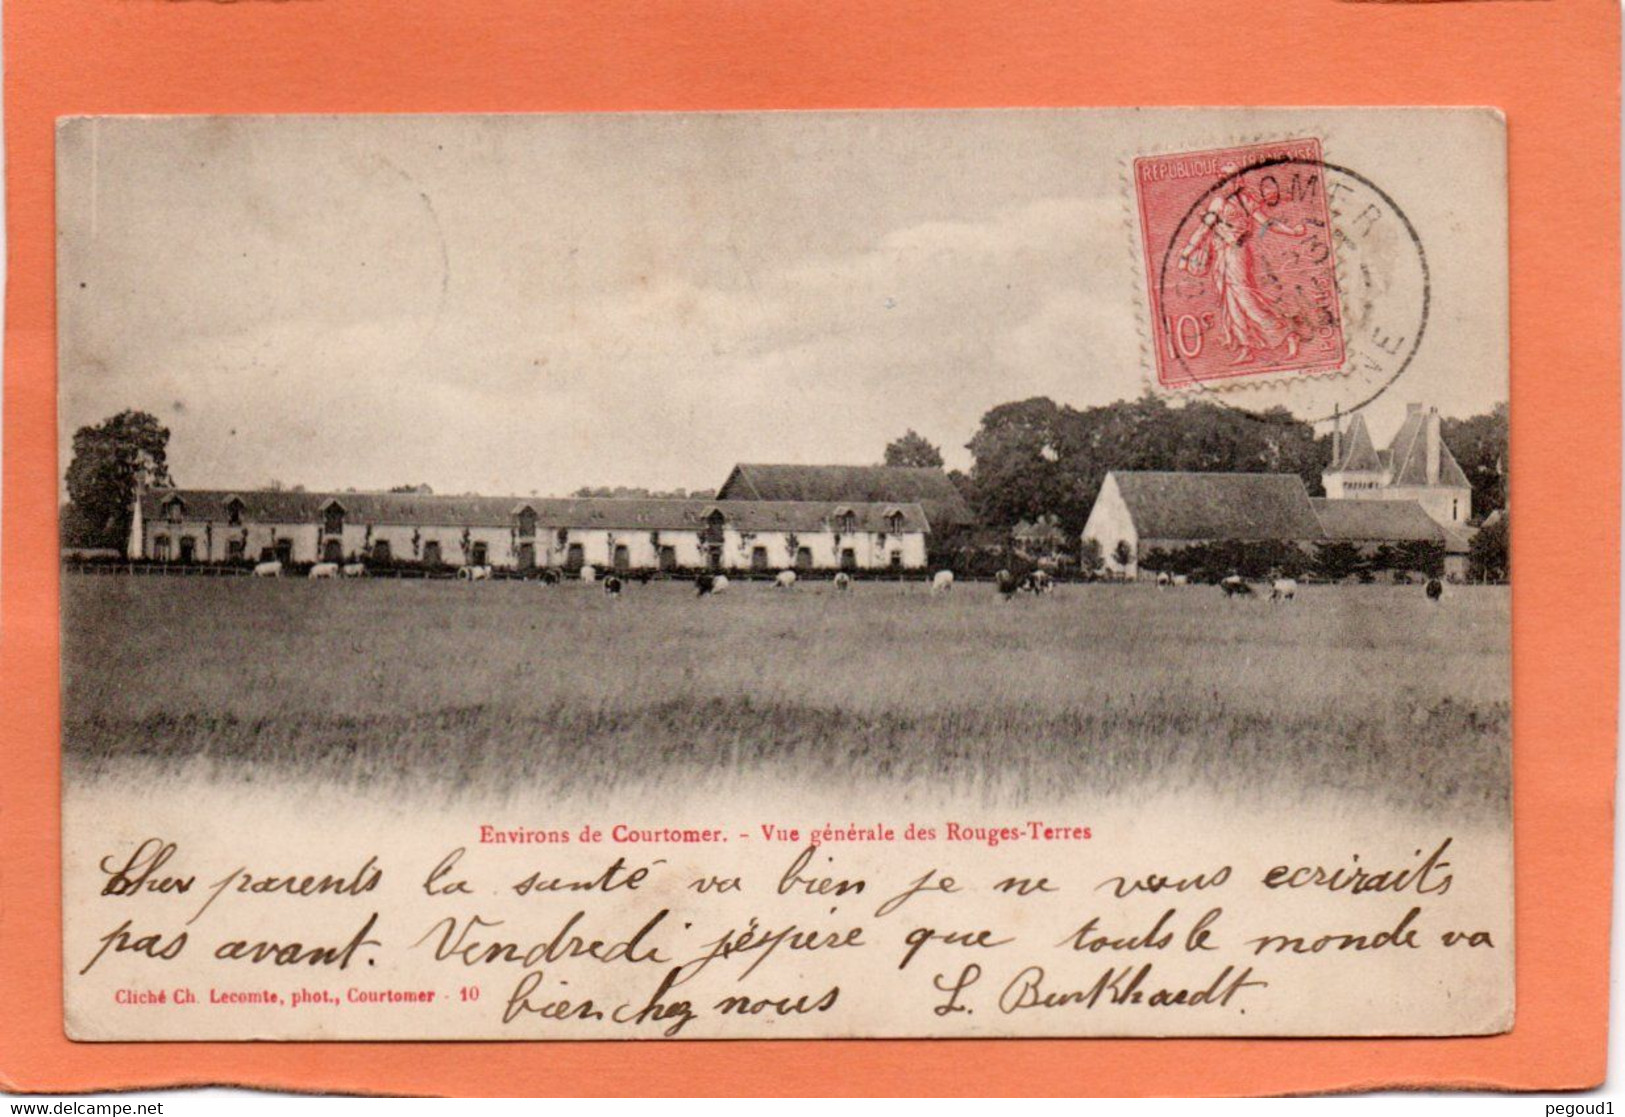 REPUBLIQUE FRANÇAISE
10c
COURTOMER
ORNE
Environs de Courtomer. - Vue générale des Rouges-Terres
Cher parents la santé va bien je ne vous ecriraits
pas avant. Vendredi j'éspère que touts le monde va
bien chez nous L. Burkhardt.
Cliché Ch. Lecomte, phot., Courtomer - 10
www.delcampe.net
pegoud1